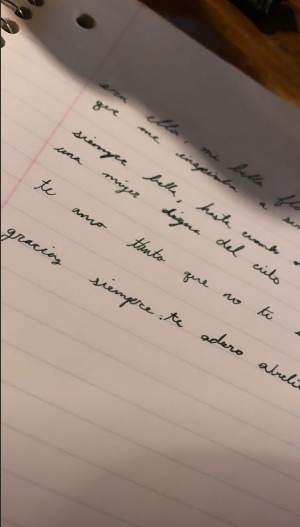 con ella, mi bella
que me inspira a
siempre bella, hasta cuando
una mujer digna del cielo
te amo tanto que no te
gracias siempre. te adoro